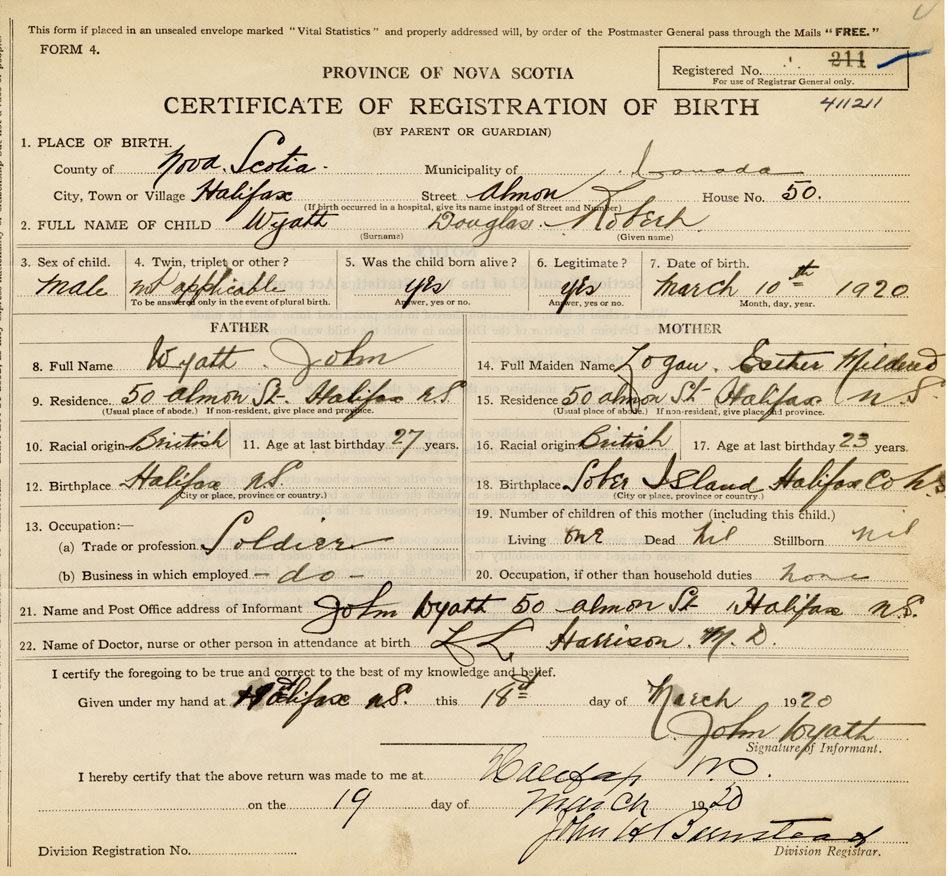 This form if placed in an unsealed envelope marked "Vital Statistics" and properly addressed will, by order of the Postmaster General pass through the Mails "FREE."
FORM 4.
Registered No. 211
For use of Registrar General only.
PROVINCE OF NOVA SCOTIA
CERTIFICATE OF REGISTRATION OF BIRTH 411211
(BY PARENT OR GUARDIAN)
1. PLACE OF BIRTH.
County of Nova Scotia Municipality of Canada
City, Town or Village Halifax Street Almon House No. 50.
(If birth occurred in a hospital, give its name instead of Street and Number)
2. FULL NAME OF CHILD Wyath Douglas Robert
(Surname) (Given name)
3. Sex of child. 4. Twin, triplet or other? 5. Was the child born alive? 6. Legitimate? 7. Date of birth.
Male not applicable yes yes March 10th 1920
To be answered only in the event of plural birth. Answer, yes or no. Answer, yes or no. Month, day, year.
FATHER MOTHER
8. Full Name Wyath John 14. Full Maiden Name Logan. Esther Mildered
9. Residence. 50 Almon St. Halifax N.S. 15. Residence 50 Almon St Halifax N.S.
(Usual place of abode.) If non-resident, give place and province. (Usual place of abode.) If non-resident, give place and province.
10. Racial origin British 11. Age at last birthday 27 years. 16. Racial origin British 17. Age at last birthday 23 years.
12. Birthplace Halifax N.S. 18. Birthplace Sober Island Halifax Co N.S
(City or place, province or country.) (City or place, province or country.)
13. Occupation:— 19. Number of children of this mother (including this child.)
(a) Trade or profession Soldier Living one Dead nil Stillborn nil
(b) Business in which employed - do - 20. Occupation, if other than household duties none
21. Name and Post Office address of Informant John Wyath 50 Almon St Halifax N.S.
22. Name of Doctor, nurse or other person in attendance at birth Harrison. M.D.
I certify the foregoing to be true and correct to the best of my knowledge and belief.
Given under my hand at Halifax N.S. this 18 day of March 1920
John Wyath
Signature of Informant.
I hereby certify that the above return was made to me at Halifax
on the 19 day of March 1920
John H Bumstead
Division Registration No. Division Registrar.